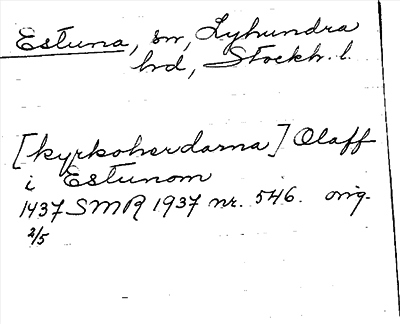 Estuna, sn, Lyhundra
hd, Stockh. l.
[kyrkoherdarna] Olaff
i Estunom
1437 SMR 1937 nr. 546. orig.
2/5